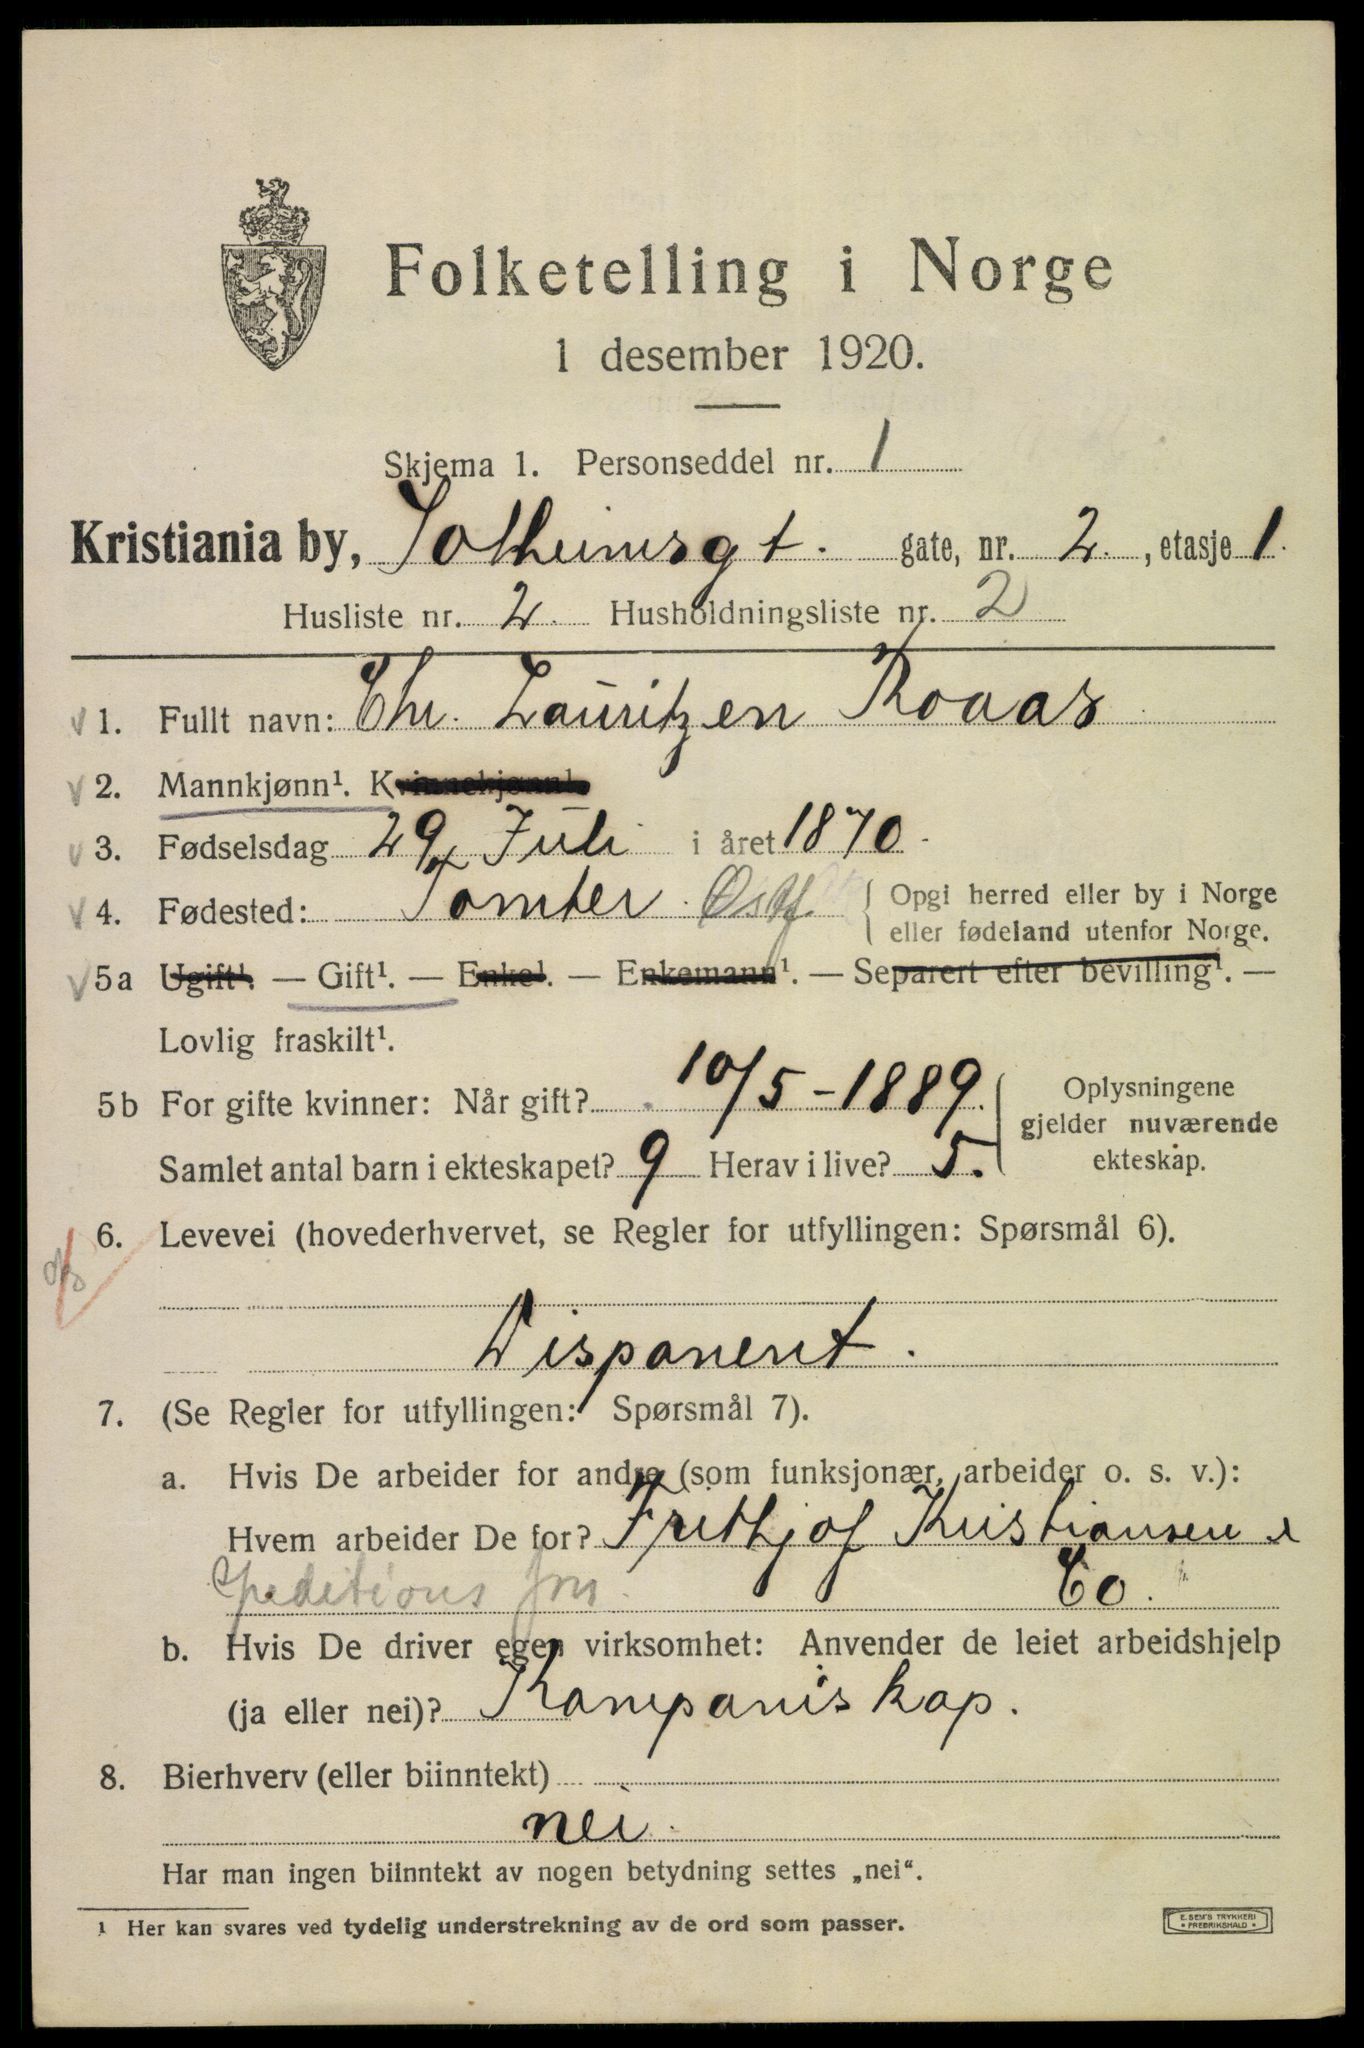 Folketelling i Norge
1 desember 1920.
Skjema 1. Personseddel nr. 1
Kristiania by, Sotheimsgt. gate, nr. 2, etasje 1.
Husliste nr. 2. Husholdningsliste nr. 2
1. Fullt navn: Chr. Lauritzen Roaas
2. Mannkjønn¹. Kvinnekjønn¹.
3. Fødselsdag 29 Juli i året 1870.
4. Fødested: Tomter Østf. Opgi herred eller by i Norge
eller fødeland utenfor Norge.
5a Ugift¹. — Gift¹. — Enke¹. — Enkemann¹. — Separert efter bevilling¹. —
Lovlig fraskilt¹.
5b For gifte kvinner: Når gift? 10/5-1889. Oplysningene
gjelder nuværende
Samlet antal barn i ekteskapet? 9 Herav i live? 5. ekteskap.
6. Levevei (hovederhvervet, se Regler for utfyllingen: Spørsmål 6).
Disponent.
7. (Se Regler for utfyllingen: Spørsmål 7).
a. Hvis De arbeider for andre (som funksjonær, arbeider o. s. v.):
Hvem arbeider De for? Frithjof Kristiansen &
Speditions frm. Co.
b. Hvis De driver egen virksomhet: Anvender de leiet arbeidshjelp
(ja eller nei)? Kompaniskap.
8. Bierhverv (eller biinntekt)
nei.
Har man ingen biinntekt av nogen betydning settes „nei“.
1 Her kan svares ved tydelig understrekning av de ord som passer.
E. SEM'S TRYKKERI
• FREDRIKSHALD •